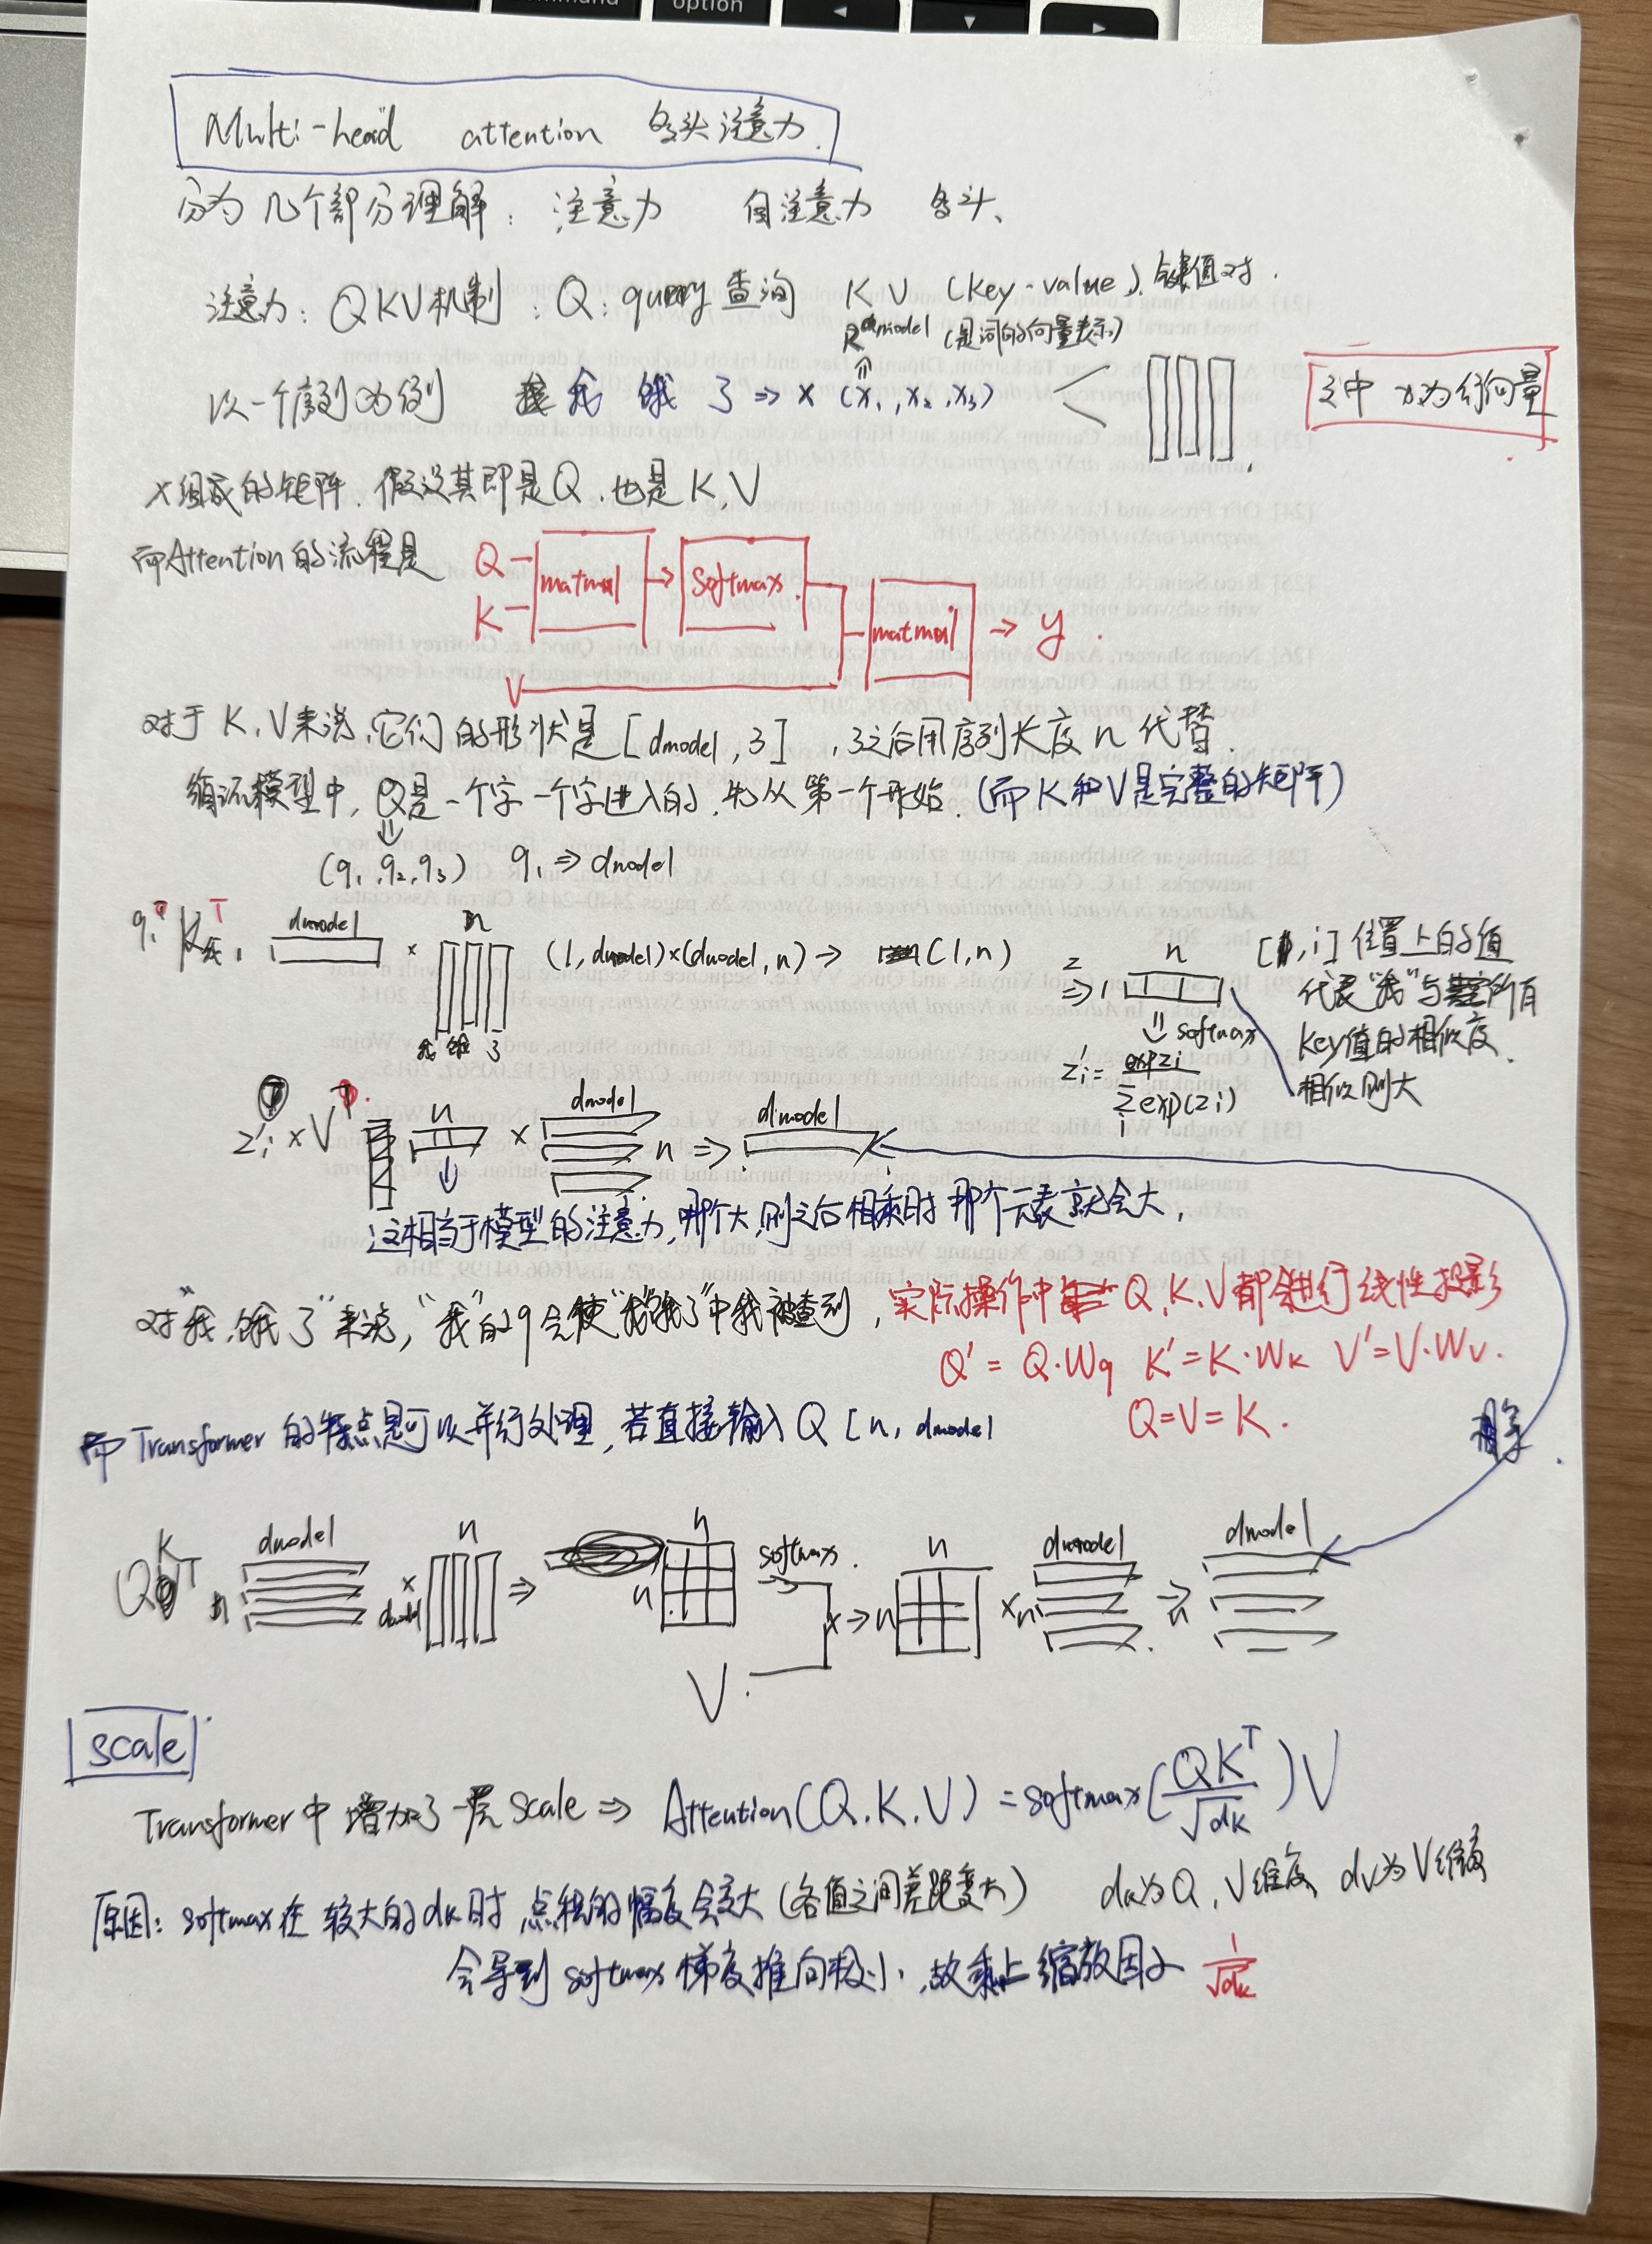 command
option
◀
▼
▶
Multi-head attention 多头注意力.
分为几个部分理解: 注意力 自注意力 多头、
注意力: QKV机制: Q: query 查询 K V (key-value) 键值对.
R^dmodel (是词的向量表示)
以一个序列为例 我 饿 了 ⇒ x (x₁, x₂, x₃)
文中 x为行向量
x组成的矩阵. 假设其即是Q, 也是K, V
而Attention的流程是
Q
matmul → softmax
K
matmul → y.
V
对于 K, V来说, 它们的形状是 [dmodel, 3], 3之后用序列长度 n 代替.
模型中, Q是一个字一个字进入的, 先从第一个开始. (而 K 和 V是完整的矩阵)
(q₁, q₂, q₃) q₁ ⇒ dmodel
dmodel × n (1, dmodel)×(dmodel, n) → (1, n)
z ⇒ 1 n [1, i] 位置上的值
代表"我"与所有
key值的相似度.
相似则大
我 饿 了
⇓ softmax
z'i = exp zi / Σi exp(zi)
z'i × V n × dmodel n ⇒ dmodel
这相当于模型的注意力, 哪个大, 则之后相乘时那个元素就会大,
对"我饿了"来说, "我"的q会使"我饿了"中我被查到, 实际操作中 Q, K, V 都会进行线性投影
Q' = Q·Wq K' = K·Wk V' = V·Wv.
Q=V=K.
而 Transformer 的特点是可以并行处理, 若直接输入 Q [n, dmodel
QK^T n dmodel × dmodel n ⇒ n n softmax × → n n × n dmodel ⇒ n dmodel
V.
scale
Transformer中增加了一层 scale ⇒ Attention(Q, K, V) = softmax(QK^T/√dk)V
dk为Q, V维度, dv为V维度
原因: softmax在较大的dk时 点积的幅度会变大 (各值之间差距变大)
会导致 softmax 梯度推向极小, 故乘上缩放因子 1/√dk